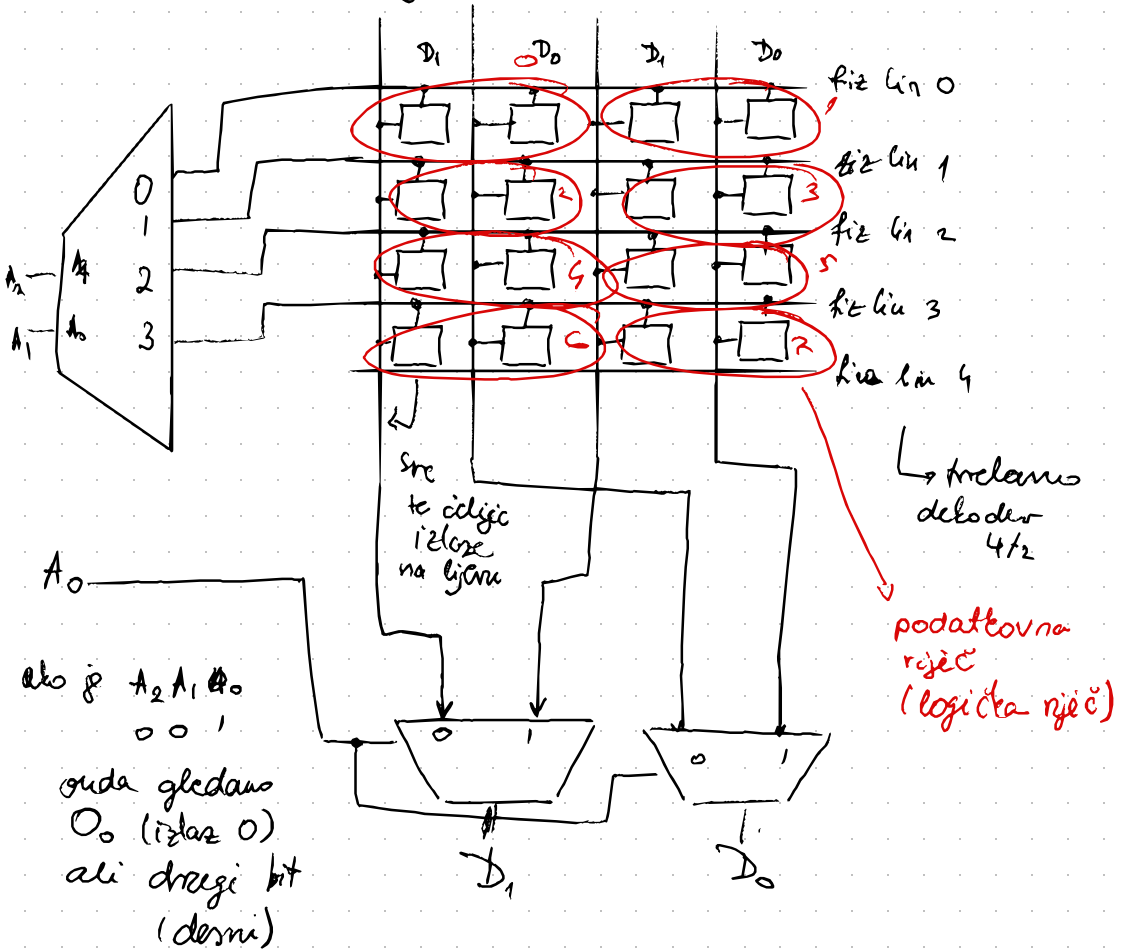 D₁ D₀ D₁ D₀
0
fiz lin 0
1
fiz lin 1
2 3
fiz lin 2
4 5
fiz lin 3
6 7
fiz lin 4
0
1
2
3
A₂
A₁
A₀
sve
te ćelije
izlaze
na lijevu
trebamo
dekoder
4/2
podatkovna
riječ
(logička riječ)
A₀
ako je A₂ A₁ A₀
0 0 1
onda gledamo
O₀ (izlaz 0)
ali drugi bit
(desni)
0 1
0 1
D₁
D₀